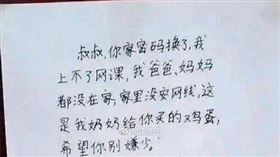 叔叔,你家密码换了,我
上不了网课,我爸爸、妈妈
都没在家,家里没安网线,这
是我奶奶给你买的鸡蛋,
希望你别嫌少!